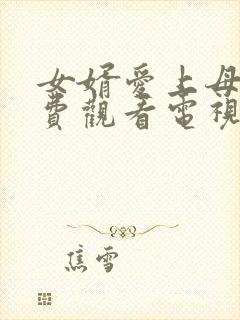 女婿愛上母
費觀看電視
焦雪